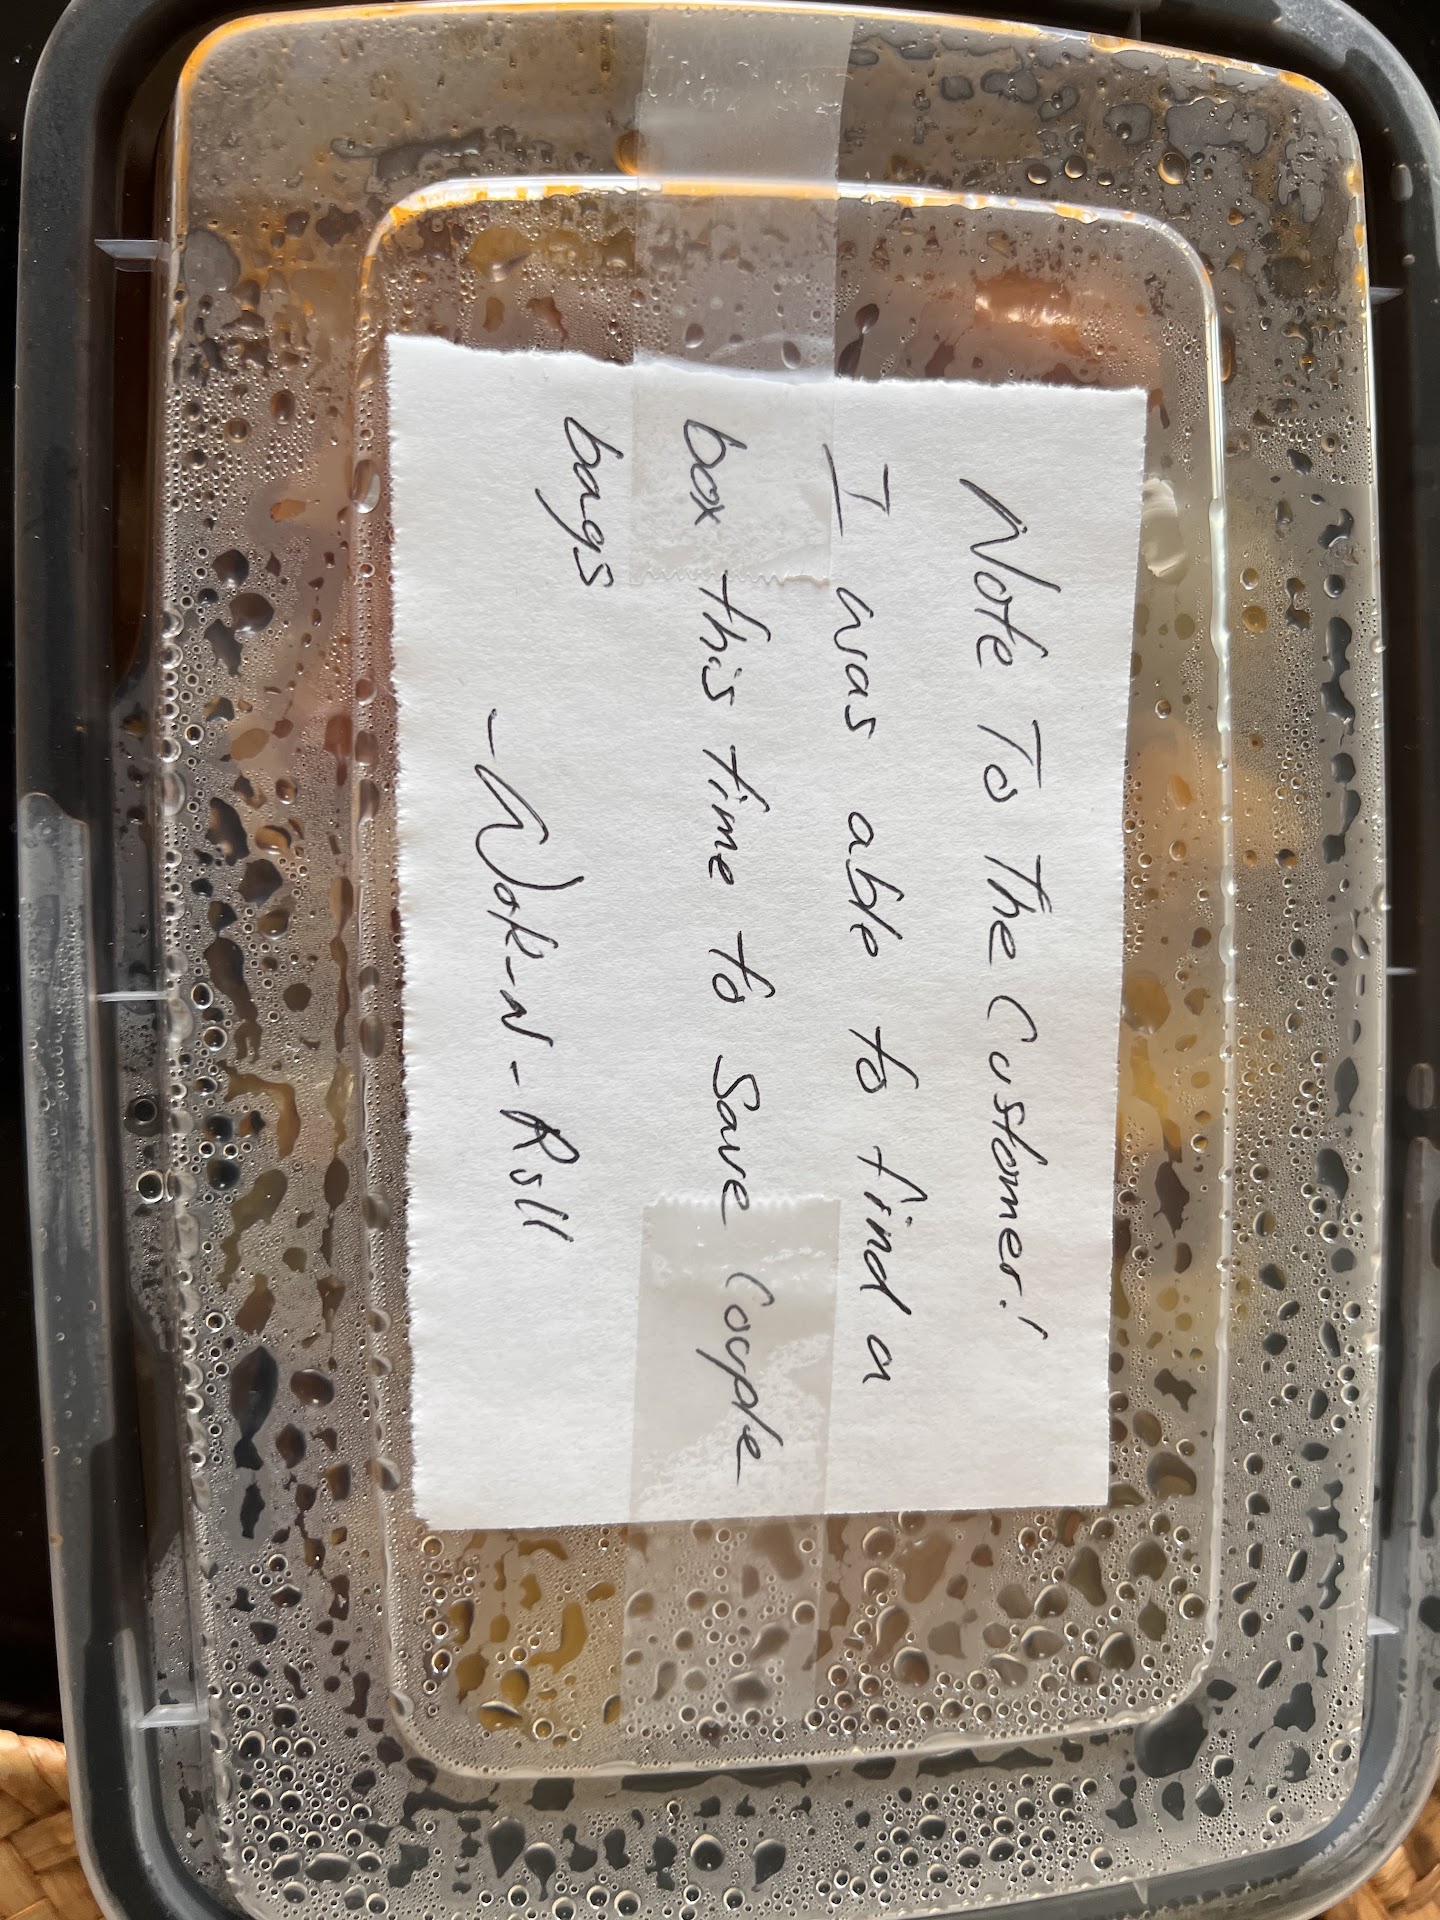 Note To The Customer!
I was able to find a
box this time to Save Couple
bags
- Wok-N-Roll